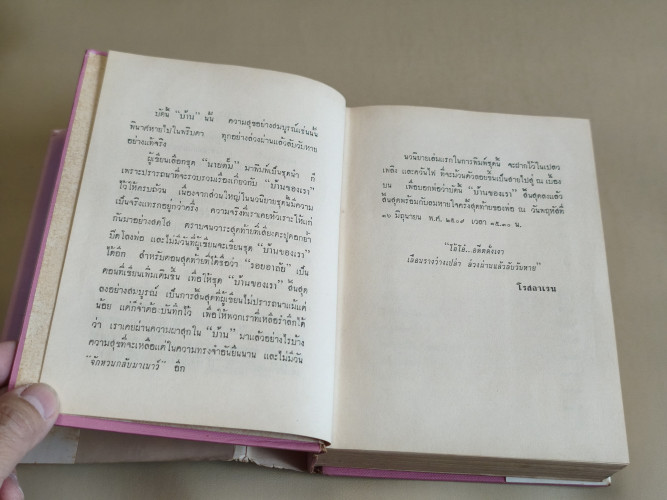 บัดนี้ “บ้าน” นั้น ความสุขอย่างสมบูรณ์เช่นนั้น
พินาศหายไปในพริบตา ทุกอย่างล่วงผ่านแล้วลับวับหาย
อย่างแท้จริง
ผู้เขียนเลือกชุด “นายดั้น” มาพิมพ์เป็นชุดนำ ก็
เพราะปรารถนาที่จะรวบรวมเรื่องเกี่ยวกับ “บ้านของเรา”
ไว้ให้ครบถ้วน เนื่องจากส่วนใหญ่ในนวนิยายชุดนี้มีความ
เป็นจริงแทรกอยู่กว่าครึ่ง ความจริงที่เราเคยหัวเราะให้แก่
กันมาอย่างสดใส ตราบจนวาระสุดท้ายที่เสียงตะปูตอกย้ำ
ปิดโลงพ่อ และไม่มีวันที่ผู้เขียนจะเขียนชุด “บ้านของเรา”
ได้อีก สำหรับตอนสุดท้ายที่ให้ชื่อว่า “รอยอาลัย” เป็น
ตอนที่เขียนเพิ่มเติมขึ้น เพื่อให้ชุด “บ้านของเรา” สิ้นสุด
ลงอย่างสมบูรณ์ เป็นการสิ้นสุดที่ผู้เขียนไม่ปรารถนาแม้แต่
น้อย แต่ก็จำต้องบันทึกไว้ เพื่อให้พวกเราที่เหลือรำลึกได้
ว่า เราเคยผ่านความผาสุกใน “บ้าน” มาแล้วอย่างไรบ้าง
ความสุขที่จะเหลือแต่ในความทรงจำอันยืนนาน และไม่มีวัน
“จักหวนกลับมาเนาว์” อีก
นวนิยายเล่มแรกในการพิมพ์ชุดนี้ จะฝากไว้ในเปลว
เพลิง และควันไฟ ที่จะม้วนตัวลอยขึ้นเป็นสายไปสู่ ณ เบื้อง
บน เพื่อบอกพ่อว่าบัดนี้ “บ้านของเรา” สิ้นสุดลงแล้ว
สิ้นสุดพร้อมกับลมหายใจครั้งสุดท้ายของพ่อ ณ วันพฤหัสที่
๑๖ มิถุนายน พ.ศ. ๒๕๐๙ เวลา ๑๕.๓๐ น.
“โอ้โอ๋..อดีตดั่งเงา
เลือนรางว่างเปล่า ล่วงผ่านแล้วลับวับหาย”
โรสลาเรน